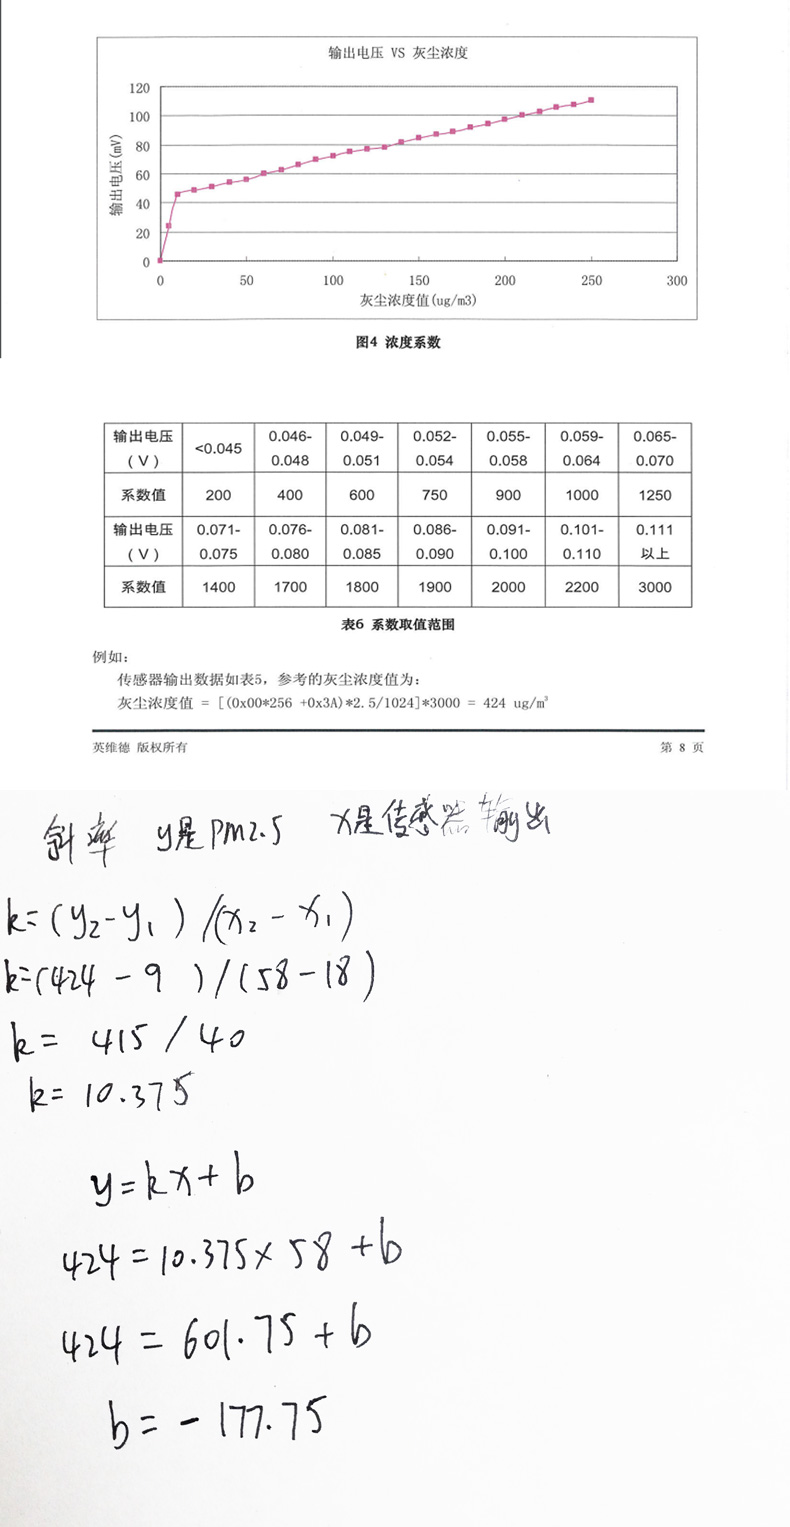 输出电压 VS 灰尘浓度
120
100
80
60
40
20
0
输出电压(mV)
0 50 100 150 200 250 300
灰尘浓度值(ug/m3)
图4 浓度系数
输出电压(V) <0.045 0.046-0.048 0.049-0.051 0.052-0.054 0.055-0.058 0.059-0.064 0.065-0.070
系数值 200 400 600 750 900 1000 1250
输出电压(V) 0.071-0.075 0.076-0.080 0.081-0.085 0.086-0.090 0.091-0.100 0.101-0.110 0.111以上
系数值 1400 1700 1800 1900 2000 2200 3000
表6 系数取值范围
例如:
传感器输出数据如表5，参考的灰尘浓度值为:
灰尘浓度值 = [(0x00*256 +0x3A)*2.5/1024]*3000 = 424 ug/m³
英维德 版权所有 第 8 页
斜率 y是PM2.5 x是传感器输出
k=(y₂-y₁)/(x₂-x₁)
k=(424-9)/(58-18)
k= 415/40
k= 10.375
y=kx+b
424=10.375×58+b
424=601.75+b
b=-177.75